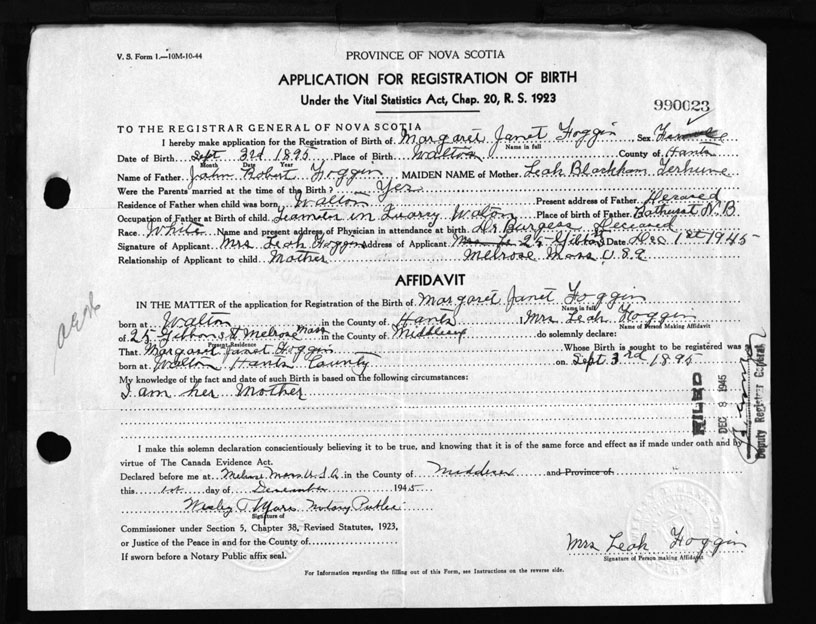 V. S. Form 1.—10M-10-44
PROVINCE OF NOVA SCOTIA
APPLICATION FOR REGISTRATION OF BIRTH
Under the Vital Statistics Act, Chap. 20, R. S. 1923
990023
TO THE REGISTRAR GENERAL OF NOVA SCOTIA
I hereby make application for the Registration of Birth of Margaret Janet Foggin, Sex Female
Name in full
Date of Birth Sept 3rd 1895 Place of Birth Walton County of Hants
Month Date Year
Name of Father John Robert Foggin MAIDEN NAME of Mother Leah Blackham Terhune
Were the Parents married at the time of the Birth? Yes
Residence of Father when child was born, Walton Present address of Father
Occupation of Father at Birth of child. in Quarry Walton Place of birth of Father. Bathurst N.B.
Race. White Name and present address of Physician in attendance at birth. Dr. Burgess Deceased
Signature of Applicant Mrs Leah Foggin address of Applicant 25 Gibbons Date Dec 1st 1945
Relationship of Applicant to child Mother Melrose Mass U.S.A
AFFIDAVIT
IN THE MATTER of the application for Registration of the Birth of Margaret Janet Foggin
Name in full
born at Walton in the County of Hants Mrs Leah Foggin
Name of Person Making Affidavit
of 25 Gibbons St Melrose Mass in the County of Middlesex do solemnly declare:
Present Residence
That Margaret Janet Foggin Whose Birth is sought to be registered was
born at Walton Hants County on Sept 3rd 1895
My knowledge of the fact and date of such Birth is based on the following circumstances:
I am her Mother
FILED
DEC 8 1945
Deputy Registrar General
I make this solemn declaration conscientiously believing it to be true, and knowing that it is of the same force and effect as if made under oath and by
virtue of The Canada Evidence Act.
Declared before me at Melrose Mass U.S.A. in the County of Middlesex and Province of
this 1st day of December 1945
Wesley Notary Public
Signature of
Commissioner under Section 5, Chapter 38, Revised Statutes, 1923,
or Justice of the Peace in and for the County of
If sworn before a Notary Public affix seal.
Mrs Leah Foggin
Signature of Person making Affidavit
For Information regarding the filling out of this Form, see Instructions on the reverse side.